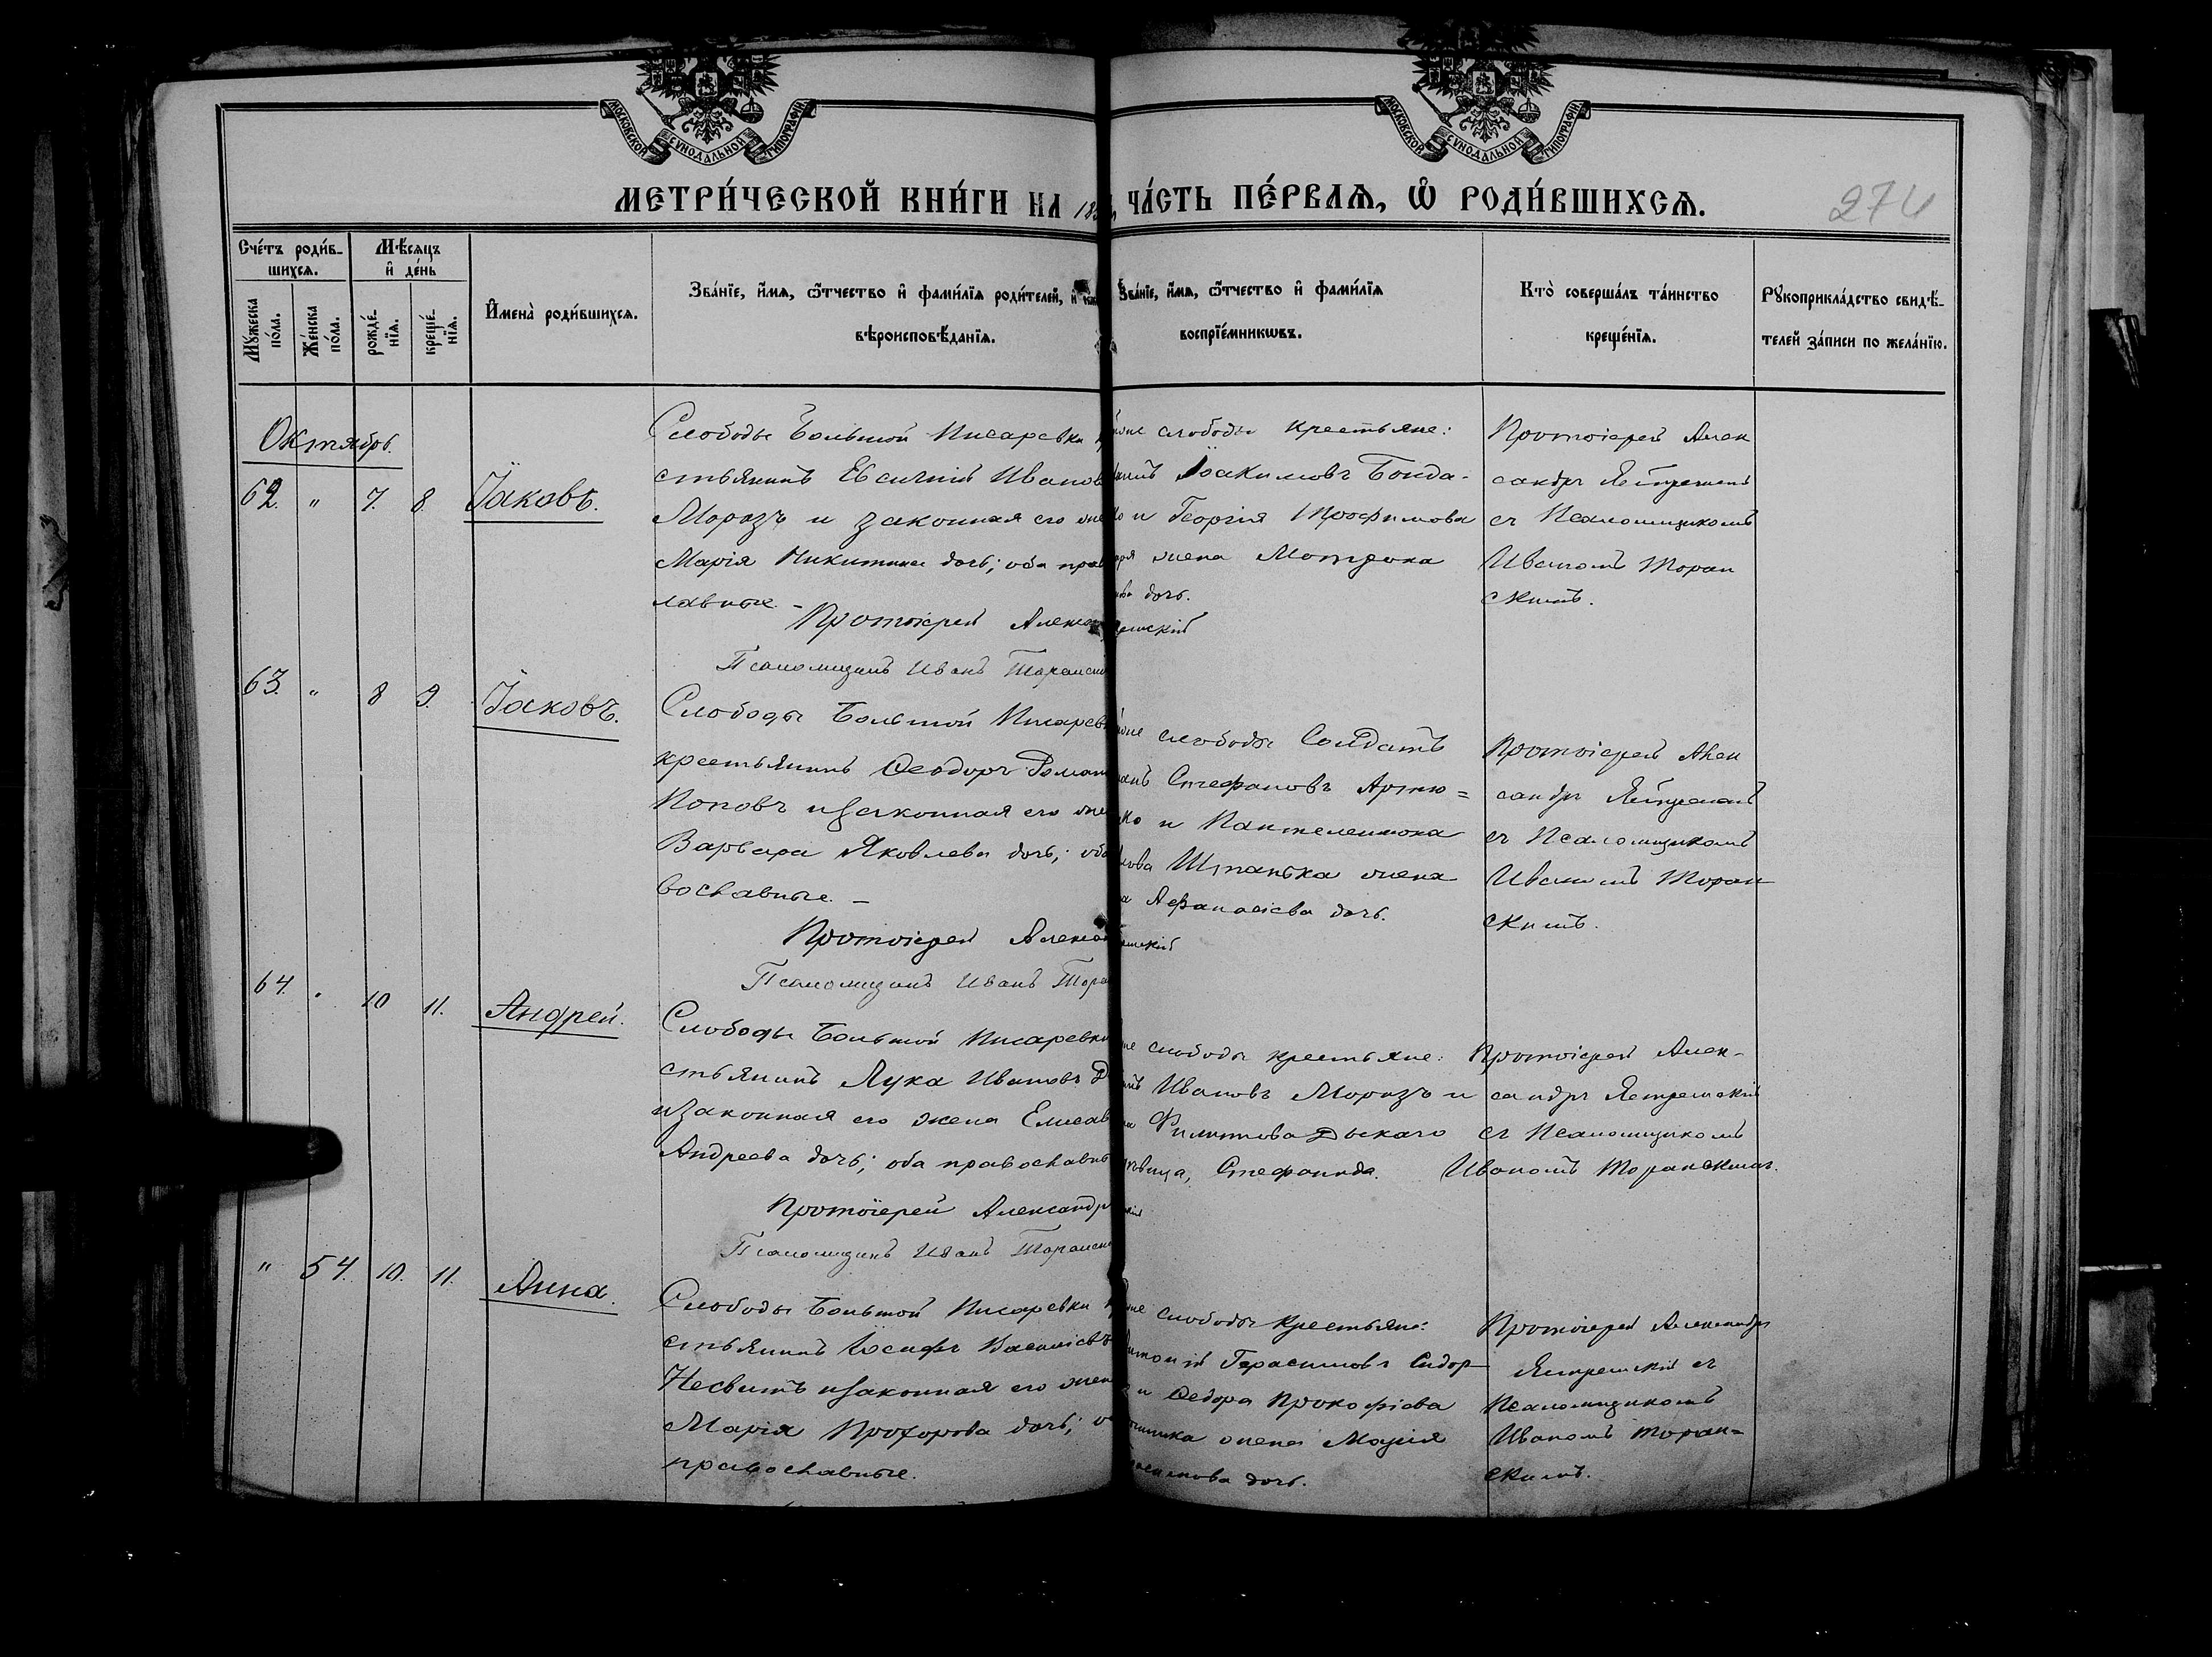 МОСКОВСКОЙ СѴНОДАЛЬНОЙ ТИПОГРАФІИ
МОСКОВСКОЙ СѴНОДАЛЬНОЙ ТИПОГРАФІИ
МЕТРИ́ЧЕСКОЙ КНИ́ГИ НА 18
ЧА́СТЬ ПЕ́РВАѦ, Ѽ РОДИ́ВШИХСѦ.
274
Сче́тъ роди́в-
шихсѧ.
Мѣ́сѧцъ
и҆ де́нь
Мꙋ́жеска
по́ла.
Же́нска
по́ла.
рожде́-
нїѧ.
креще́-
нїѧ.
И҆мена̀ роди́вшихсѧ.
Зва́нїе, и҆́мѧ, ѻ҆́тчество и҆ фами́лїѧ роди́телей, и҆
вѣроисповѣ́данїѧ.
Зва́нїе, и҆́мѧ, ѻ҆́тчество и҆ фами́лїѧ
воспрїе́мникѡвъ.
Кто̀ соверша́лъ та́инство
креще́нїѧ.
Рꙋкоприкла́дство свидѣ́-
телей за́писи по жела́нїю.
Октябрь.
62. " 7. 8. Іаковъ.
Слободы Большой Писаревки
стьянинъ Евсигній Иванов
Морозъ и законная его
Марія Никитина дочь; оба прав
лавные. –
Протоіерей Алекса
Псаломщикъ Иванъ Торанск
слободы крестьяне:
Іоакимовъ Бонда-
и Георгія Трофимова
жена Мотрона
дочь.
Протоіерей Алек
сандръ Ястремскій
съ Псаломщикомъ
Иваномъ Торан
скимъ.
63. " 8 9. Іаковъ.
Слободы Большой Писарев
крестьянинъ Ѳеодоръ Роман
Поповъ и законная его
Варвара Яковлева дочь; оба
вославные. –
Протоіерей Алекса
Псаломщикъ Иванъ Тора
слободы Солдатъ
Стефановъ Артю=
и Пантелеимона
Шпанька жена
Афанасіева дочь.
Протоіерей Алек
сандръ Ястремскій
съ Псаломщикомъ
Иваномъ Торан
скимъ.
64. " 10 11. Андрей.
Слободы Большой Писаревки
стьянинъ Лука Ивановъ
и законная его жена Елисав
Андреева дочь; оба православн
Протоіерей Александр
Псаломщикъ Иванъ Торанск
слободы крестьяне:
Ивановъ Морозъ и
Филиппова Дыкаго
Стефанида.
Протоіерей Алек-
сандръ Ястремскій
съ Псаломщикомъ
Иваномъ Торанскимъ.
" 54. 10. 11. Анна.
Слободы Большой Писаревки
стьянинъ Іосифъ Василіевъ
Несвитъ и законная его жен
Марія Прохорова дочь;
православные.
слободы крестьяне:
Герасимовъ Сидор
и Ѳедора Прокофіева
жена Марія
дочь.
Протоіерей Александръ
Ястремскій съ
Псаломщикомъ
Иваномъ Торан=
скимъ.